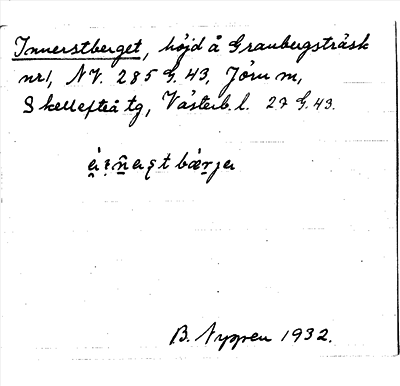 Innerstberget, höjd å Granbergsträsk
nr 1, NV. 285 G. 43, Jörn m,
Skellefteå tg, Västerb. l. 27 G. 43.
B. Nygren 1932.